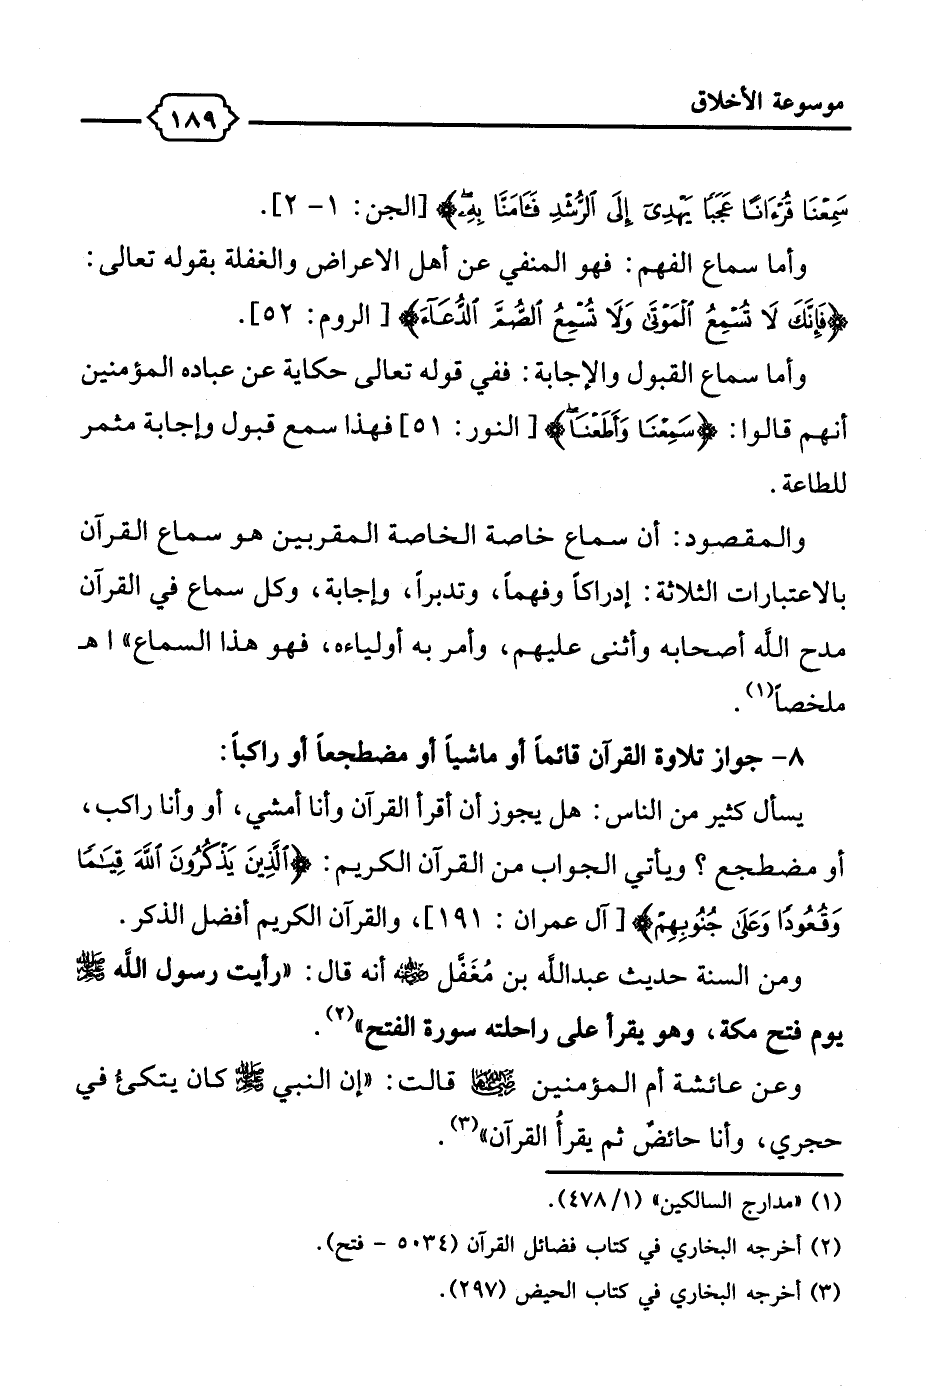 موسوعة الأخلاق
١٨٩
سَمِعْنَا قُرْءَانًا عَجَبًا يَهْدِىٓ إِلَى ٱلرُّشْدِ فَـَٔامَنَّا بِهِۦۖ﴾ [الجن: ١- ٢].
وأما سماع الفهم: فهو المنفي عن أهل الاعراض والغفلة بقوله تعالى:
﴿فَإِنَّكَ لَا تُسْمِعُ ٱلْمَوْتَىٰ وَلَا تُسْمِعُ ٱلصُّمَّ ٱلدُّعَآءَ﴾ [ الروم: ٥٢].
وأما سماع القبول والإجابة: ففي قوله تعالى حكاية عن عباده المؤمنين
أنهم قالوا: ﴿سَمِعْنَا وَأَطَعْنَاۖ﴾ [ النور: ٥١] فهذا سمع قبول وإجابة مثمر
للطاعة.
والمقصود: أن سماع خاصة الخاصة المقربين هو سماع القرآن
بالاعتبارات الثلاثة: إدراكاً وفهماً، وتدبراً، وإجابة، وكل سماع في القرآن
مدح الله أصحابه وأثنى عليهم، وأمر به أولياءه، فهو هذا السماع» ا هـ
ملخصاً(١).
٨- جواز تلاوة القرآن قائماً أو ماشياً أو مضطجعاً أو راكباً:
يسأل كثير من الناس: هل يجوز أن أقرأ القرآن وأنا أمشي، أو وأنا راكب،
أو مضطجع ؟ ويأتي الجواب من القرآن الكريم: ﴿ٱلَّذِينَ يَذْكُرُونَ ٱللَّهَ قِيَـٰمًا
وَقُعُودًا وَعَلَىٰ جُنُوبِهِمْ﴾ [ آل عمران : ١٩١]، والقرآن الكريم أفضل الذكر.
ومن السنة حديث عبدالله بن مُغَفَّل رضي الله عنه أنه قال: «رأيت رسول الله ﷺ
يوم فتح مكة، وهو يقرأ على راحلته سورة الفتح»(٢).
وعن عائشة أم المؤمنين رضي الله عنها قالت: «إن النبي ﷺ كان يتكئ في
حجري، وأنا حائضٌ ثم يقرأُ القرآن»(٣).
(١) «مدارج السالكين» (١/ ٤٧٨).
(٢) أخرجه البخاري في كتاب فضائل القرآن (٥٠٣٤ - فتح).
(٣) أخرجه البخاري في كتاب الحيض (٢٩٧).